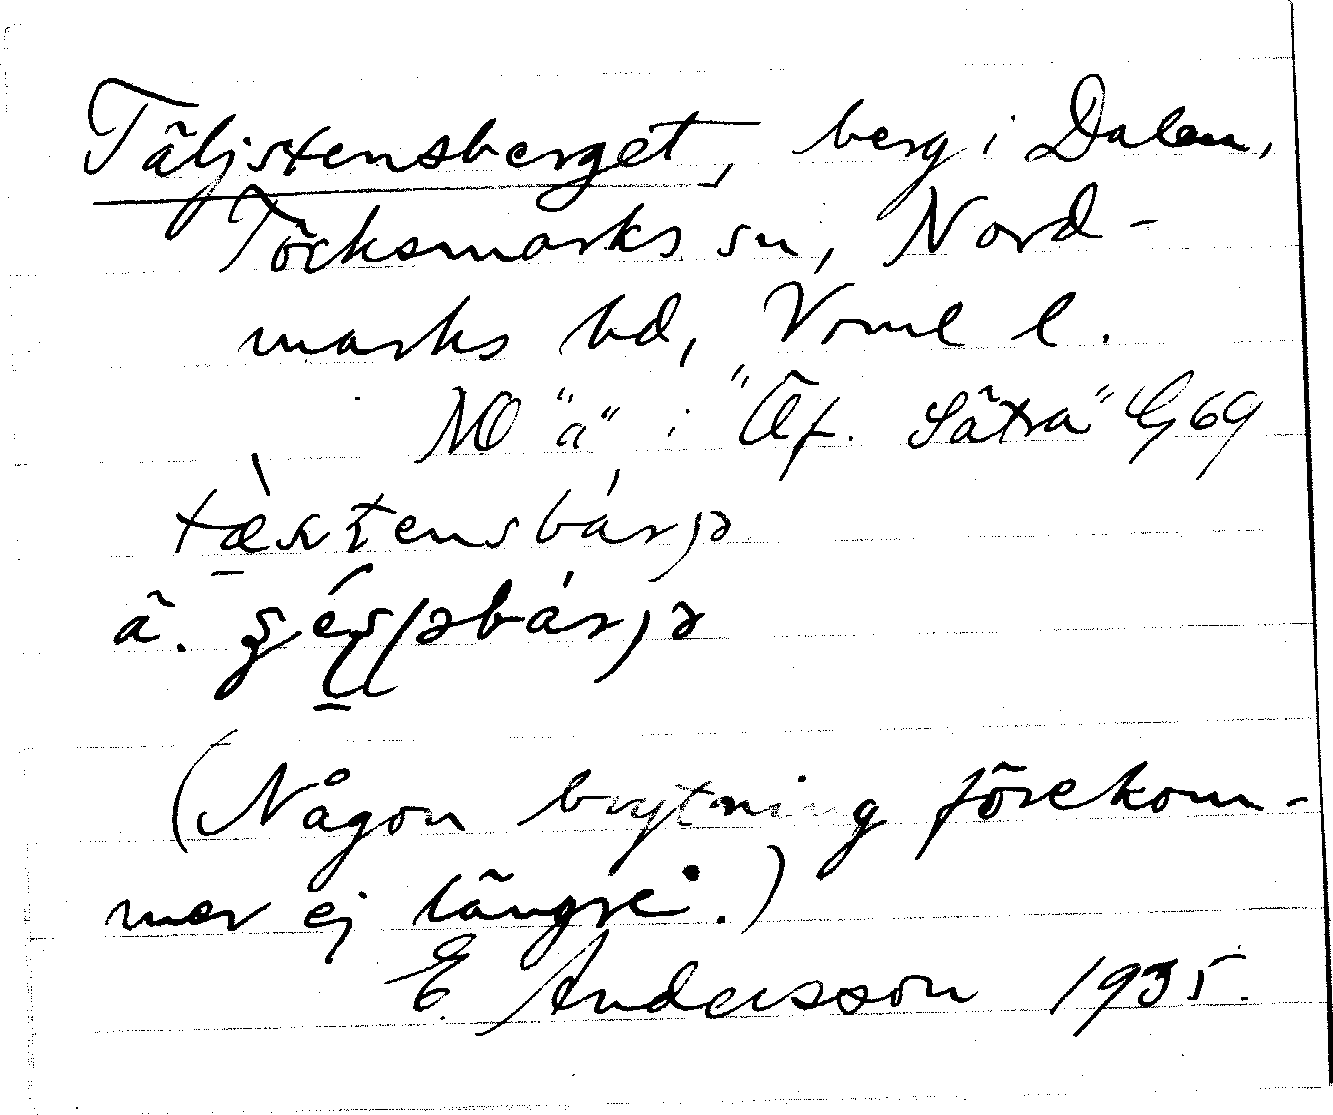 Täljstensberget, berg i Dalen,
Töcksmarks sn, Nord-
marks hd, Vrml l.
NO "a" i "Öf. Sätra" G 69
ä.
(Någon brytning förekom-
mer ej längre.)
E. Andersson 1935.